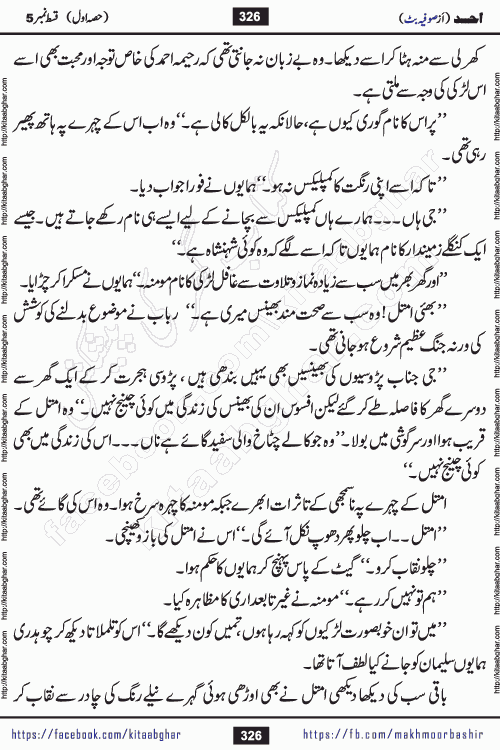 احد (از صوفیہ بٹ) 326 (حصہ اول) قسط نمبر 5
کھرلی سے منہ ہٹا کر اسے دیکھا۔ وہ بے زبان نہ جانتی تھی کہ رحیمہ احمد کی خاص توجہ اور محبت بھی اسے
اس لڑکی کی وجہ سے ملتی ہے۔
”پر اس کا نام گوری کیوں ہے، حالانکہ یہ بالکل کالی ہے۔“ وہ اب اس کے چہرے پہ ہاتھ پھیر
رہی تھی۔
”تاکہ اسے اپنی رنگت کا کمپلیکس نہ ہو۔“ ہمایوں نے فوراً جواب دیا۔
”جی ہاں۔۔۔ ہمارے ہاں کمپلیکس سے بچانے کے لیے ایسے ہی نام رکھے جاتے ہیں۔ جیسے
ایک کنگلے زمیندار کا نام ہمایوں تاکہ اسے لگے کہ وہ کوئی شہنشاہ ہے۔“
”اور گھر بھر میں سب سے زیادہ نماز و تلاوت سے غافل لڑکی کا نام مومنہ۔“ ہمایوں نے مسکرا کر چڑایا۔
”بھئی امتل! وہ سب سے صحت مند بھینس میری ہے۔“ رباب نے موضوع بدلنے کی کوشش
کی ورنہ جنگ عظیم شروع ہو جانی تھی۔
”جی جناب پڑوسیوں کی بھینسیں بھی یہیں بندھی ہیں، پڑوسی ہجرت کر کے ایک گھر سے
دوسرے گھر کا فاصلہ طے کر گئے لیکن افسوس ان کی بھینس کی زندگی میں کوئی چینج نہیں۔“ وہ امتل کے
قریب ہوا اور سرگوشی میں بولا۔ ”وہ جو کالے چٹاخ والی سفید گائے ہے ناں۔۔۔ اس کی زندگی میں بھی
کوئی چینج نہیں۔“
امتل کے چہرے پہ ناسمجھی کے تاثرات ابھرے جبکہ مومنہ کا چہرہ سرخ ہوا۔ وہ اس کی گائے تھی۔
”امتل۔۔ اب چلو پھر دھوپ نکل آئے گی۔“ اس نے امتل کی بازو کھینچی۔
”چلو نقاب کرو۔“ گیٹ کے پاس پہنچ کر ہمایوں کا حکم ہوا۔
”ہم تو نہیں کر رہے۔“ مومنہ نے غیر تابعداری کا مظاہرہ کیا۔
”میں تو ان خوبصورت لڑکیوں کو کہہ رہا ہوں، تمہیں کون دیکھے گا۔“ اس کو تلملاتا دیکھ کر چوہدری
ہمایوں سلیمان کو جانے کیا لطف آتا تھا۔
باقی سب کی دیکھا دیکھی امتل نے بھی اوڑھی ہوئی گہرے نیلے رنگ کی چادر سے نقاب کر
https://facebook.com/kitaabghar 326 https://fb.com/makhmoorbashir
http://kitaabghar.com